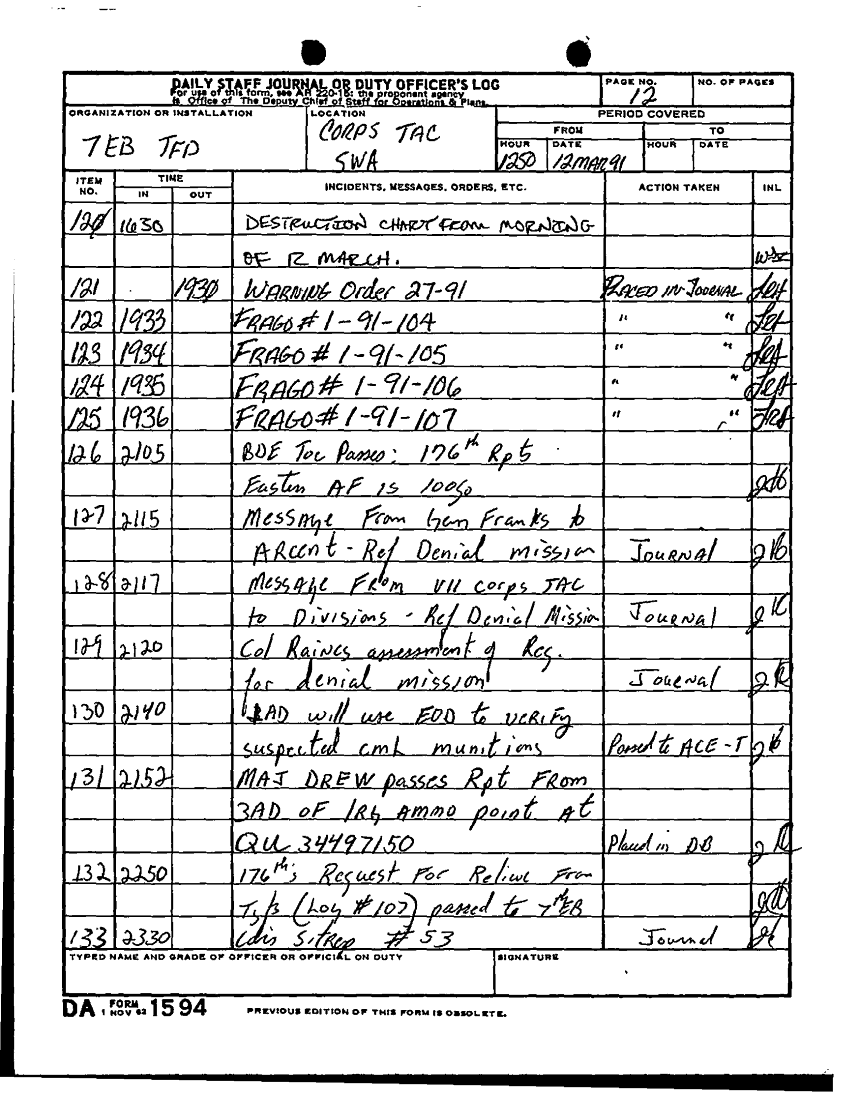 DAILY STAFF JOURNAL OR DUTY OFFICER'S LOG
For use of this form, see AR 220-15: the proponent agency
is Office of The Deputy Chief of Staff for Operations & Plans.
PAGE NO.
12
NO. OF PAGES
ORGANIZATION OR INSTALLATION
7 EB TFD
LOCATION
CORPS TAC
SWA
PERIOD COVERED
FROM TO
HOUR DATE HOUR DATE
1250 12 MAR 91
ITEM NO. TIME IN OUT INCIDENTS, MESSAGES, ORDERS, ETC. ACTION TAKEN INL
120 1630 DESTRUCTION CHART FROM MORNING
OF 12 MARCH.
121 1930 WARNING Order 27-91 PLACED IN JOURNAL
122 1933 FRAGO # 1-91-104 " "
123 1934 FRAGO # 1-91-105 " "
124 1935 FRAGO # 1-91-106 " "
125 1936 FRAGO # 1-91-107 " "
126 2105 BDE Toc Passes: 176th Rpts
AF is
127 2115 Message From Gen Franks to
ARcent - Ref Denial mission Journal
128 2117 Message From VII Corps TAC
to Divisions - Ref Denial Mission Journal
129 2120 Col Raines assessment of Reg.
for denial mission Journal
130 2140 1AD will use EOD to verify
suspected cml munitions Passed to ACE-T
131 2152 MAJ DREW passes Rpt From
3AD of Ammo point At
QU 34497150 Placed in DB
132 2250 176th's Request For Relive From
(Log # 107) passed to 7th EB
133 2330 Sitrep # 53 Journal
TYPED NAME AND GRADE OF OFFICER OR OFFICIAL ON DUTY
SIGNATURE
DA FORM 1 NOV 62 1594
PREVIOUS EDITION OF THIS FORM IS OBSOLETE.